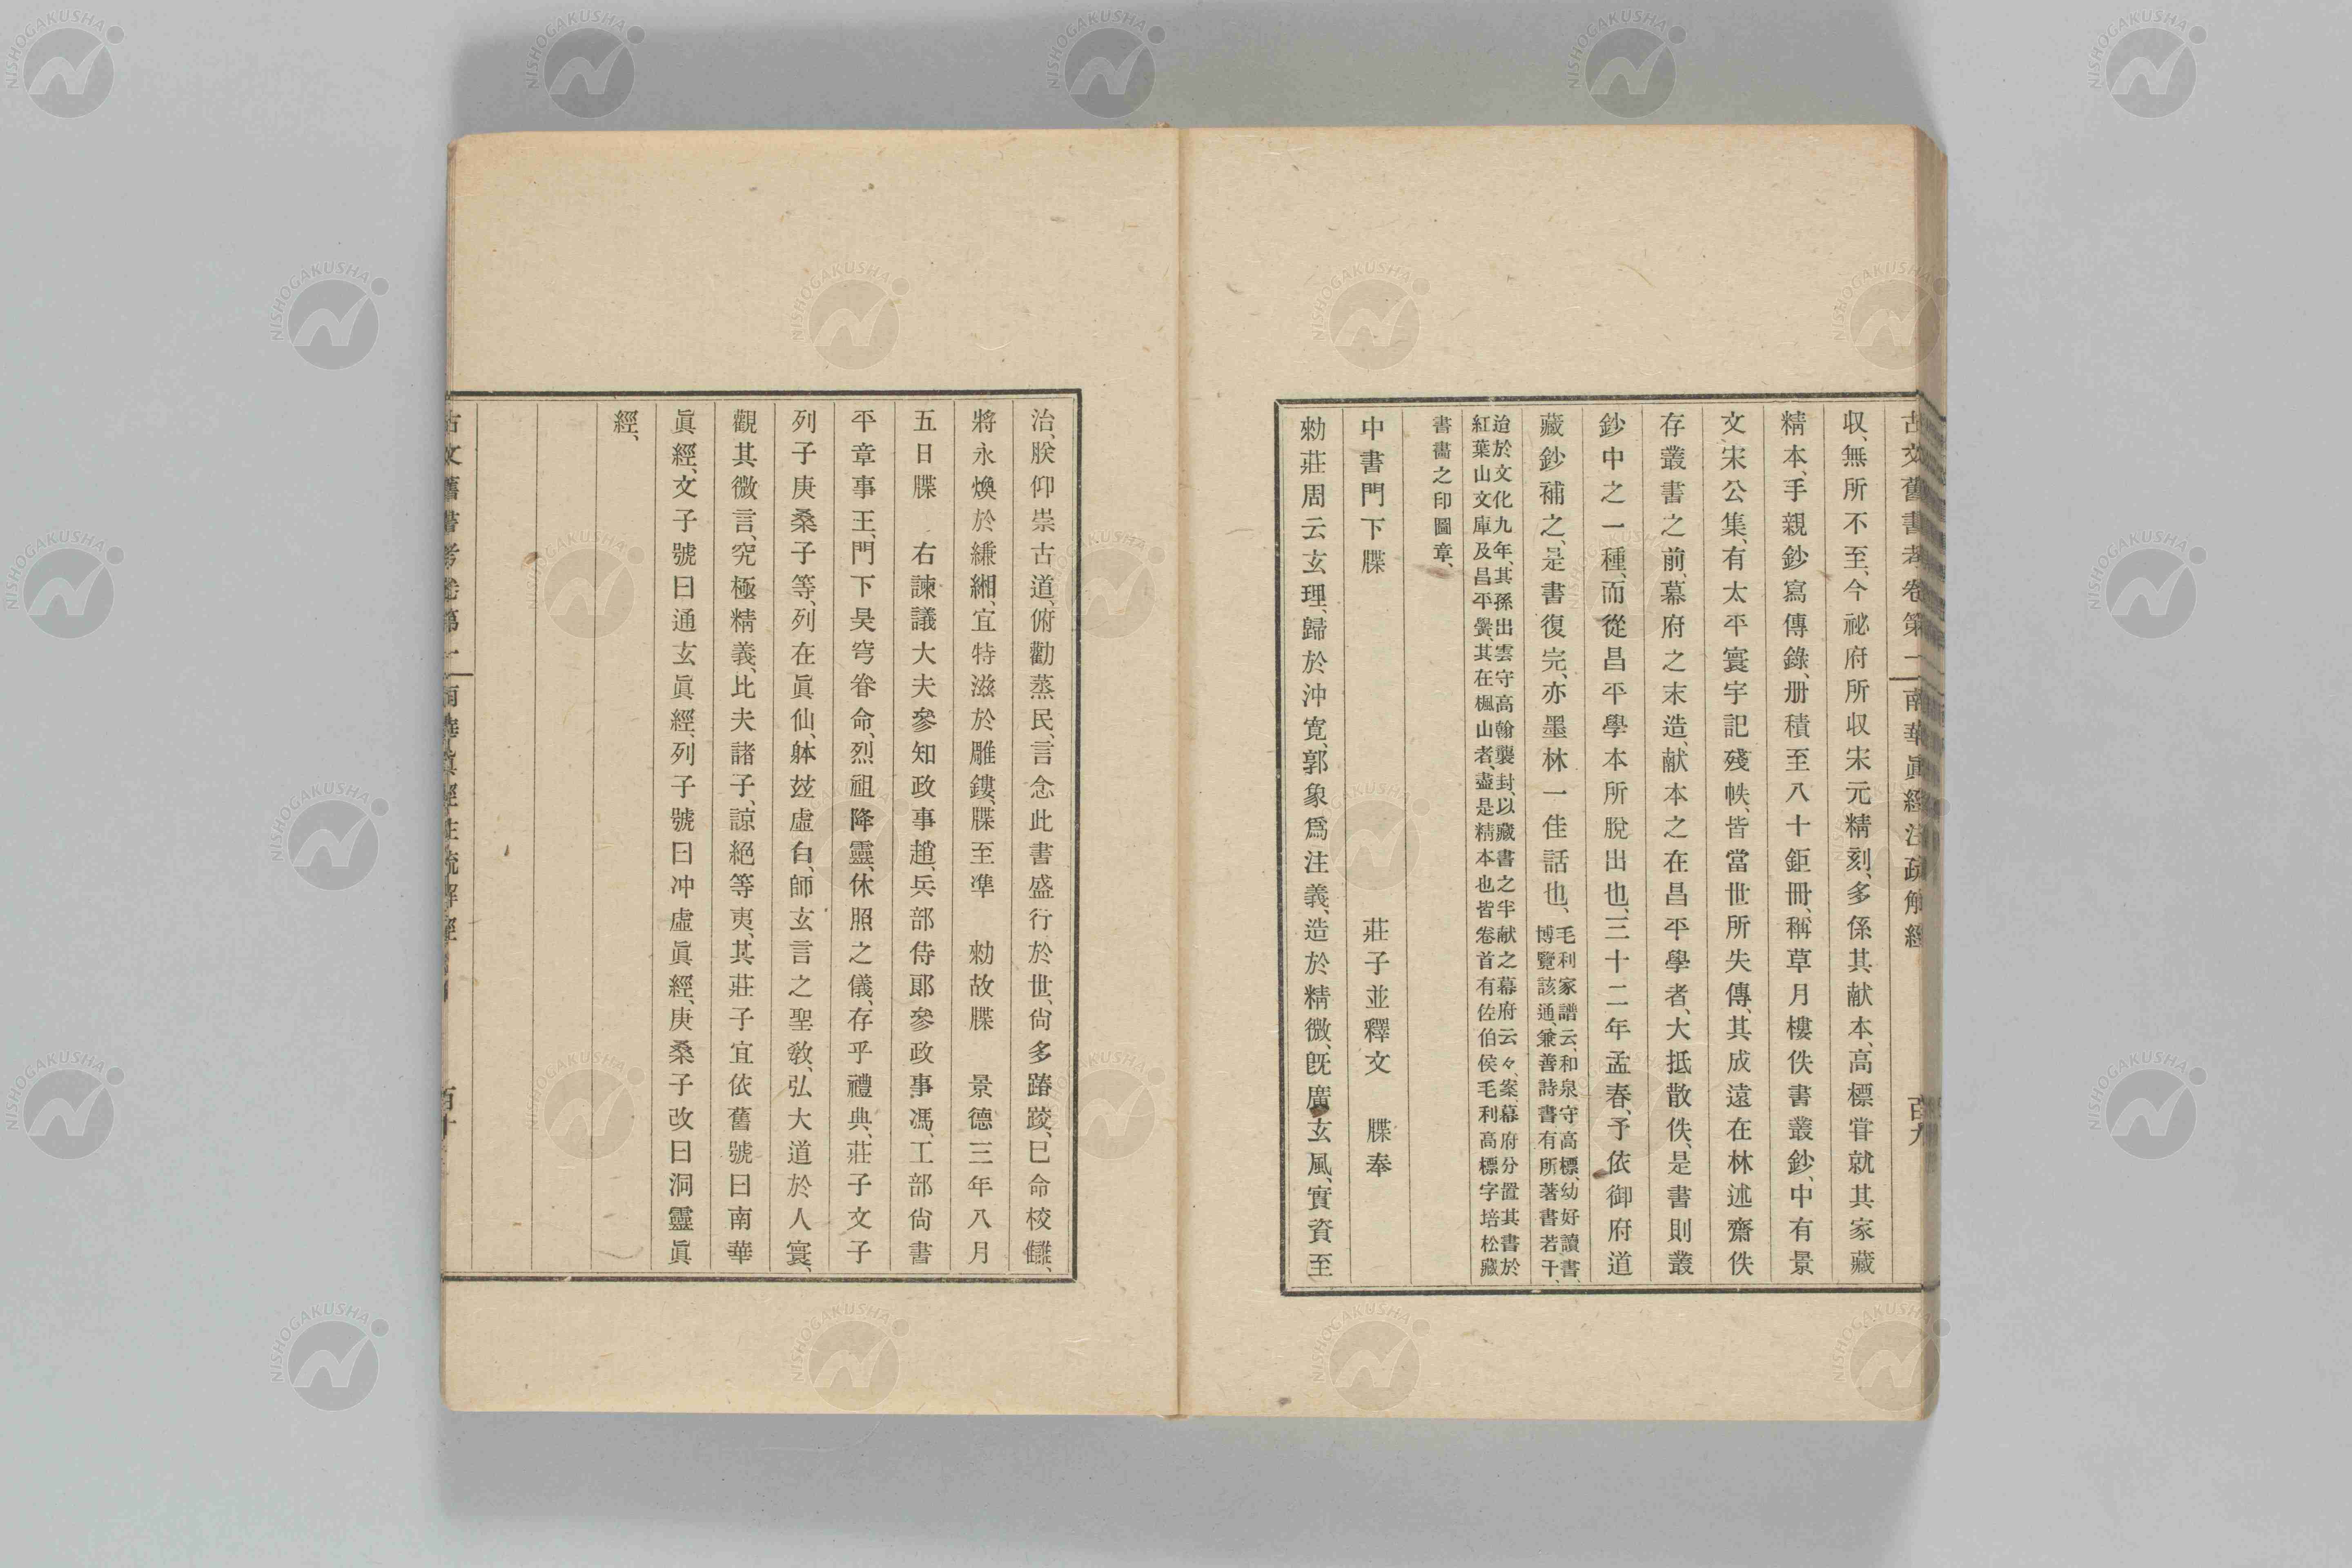 古文舊書考卷第一 南華眞經注疏解經 百九
収、無所不至、今祕府所収宋元精刻、多係其献本、高標甞就其家藏
精本、手親鈔寫傳錄、册積至八十鉅冊、稱草月樓佚書叢鈔、中有景
文宋公集、有太平寰宇記殘帙、皆當世所失傳、其成遠在林述齋佚
存叢書之前、幕府之末造、献本之在昌平學者、大抵散佚、是書則叢
鈔中之一種、而從昌平學本所脫出也、三十二年孟春、予依御府道
藏鈔補之、是書復完、亦墨林一佳話也、毛利家譜云、和泉守高標、幼好讀書、
博覽該通、兼善詩書有所著書若干、
迨於文化九年、其孫出雲守高翰襲封、以藏書之半献之幕府云々、案、幕府分置其書於
紅葉山文庫及昌平黌、其在楓山者、盡是精本也皆卷首有佐伯侯毛利高標字培松藏
書畵之印圖章、
中書門下牒 莊子並釋文 牒奉
勑莊周云玄理、歸於沖寛、郭象爲注義、造於精微、旣廣玄風、實資至
治、朕仰崇古道、俯勸蒸民、言念此書盛行於世、尙多踳踳、巳命校讎、
將永煥於縑緗、宜特滋於雕鏤、牒至準 勑故牒 景德三年八月
五日牒 右諫議大夫參知政事趙、兵部侍郞參政事馮、工部尙書
平章事王、門下昊穹眷命、烈祖降靈、休照之儀、存乎禮典、莊子文子
列子庚桑子等、列在眞仙、躰玆虛白、師玄言之聖敎、弘大道於人寰、
觀其微言、究極精義、比夫諸子、諒絕等夷、其莊子宜依舊號曰南華
眞經、文子號曰通玄眞經、列子號曰冲虛眞經、庚桑子改曰洞靈眞
經、